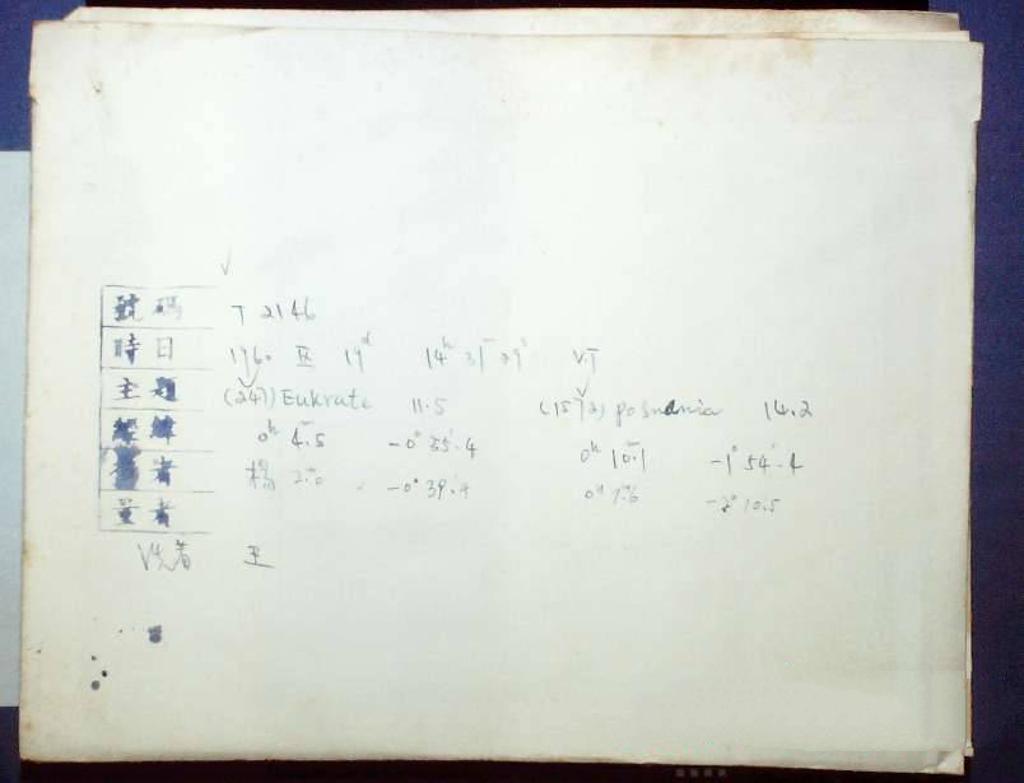 號碼 T 2146
時日 1960 IX 19d 14h 31m 29s U.T
主題 (247) Eukrate 11.5 (1572) posnania 14.2
經緯 0h 4m.5 -0° 35'.4 0h 10m.1 -1° 54'.4
攝者 楊 2m.0 -0° 39'.4 0h 7m.6 -2° 10.5
量者
洗者 王